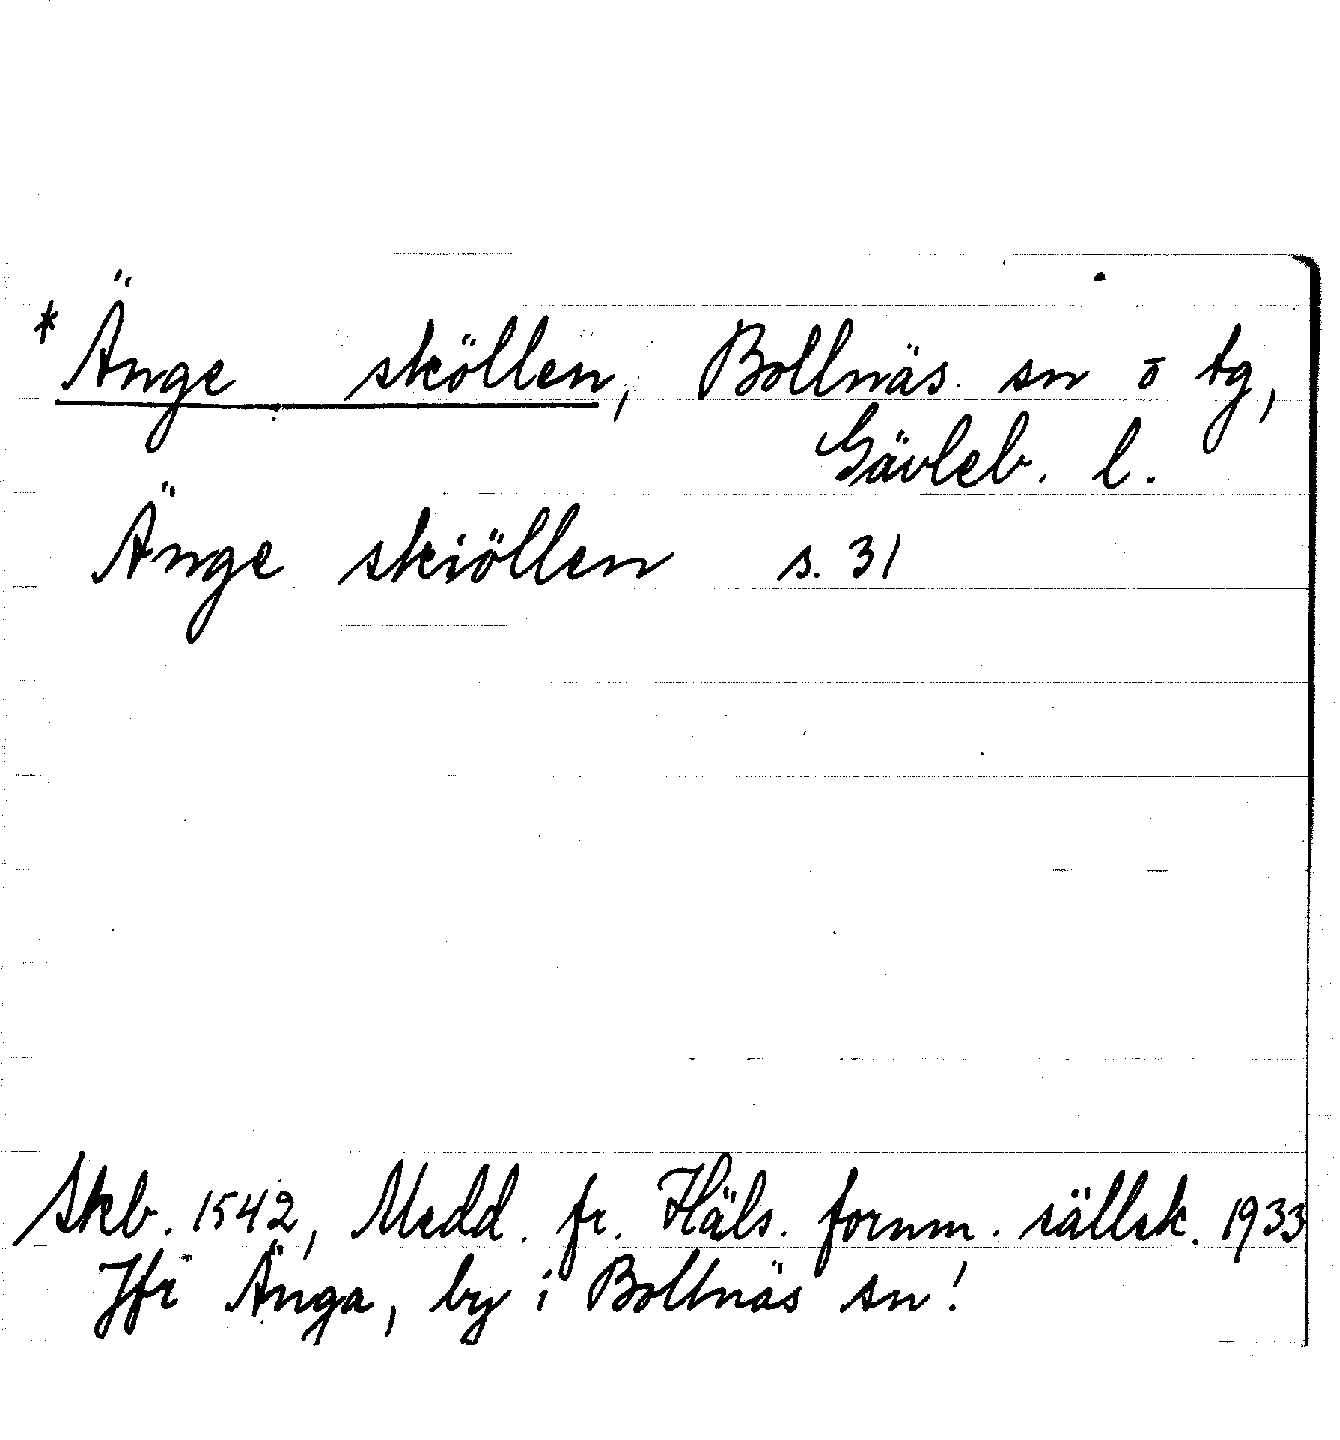 * Änge sköllen, Bollnäs sn o tg,
Gävleb. l.
Änge skiöllen s. 31
Skb. 1542, Medd. fr. Häls. fornm. sällsk. 1933
Jfr Änga, by i Bollnäs sn!